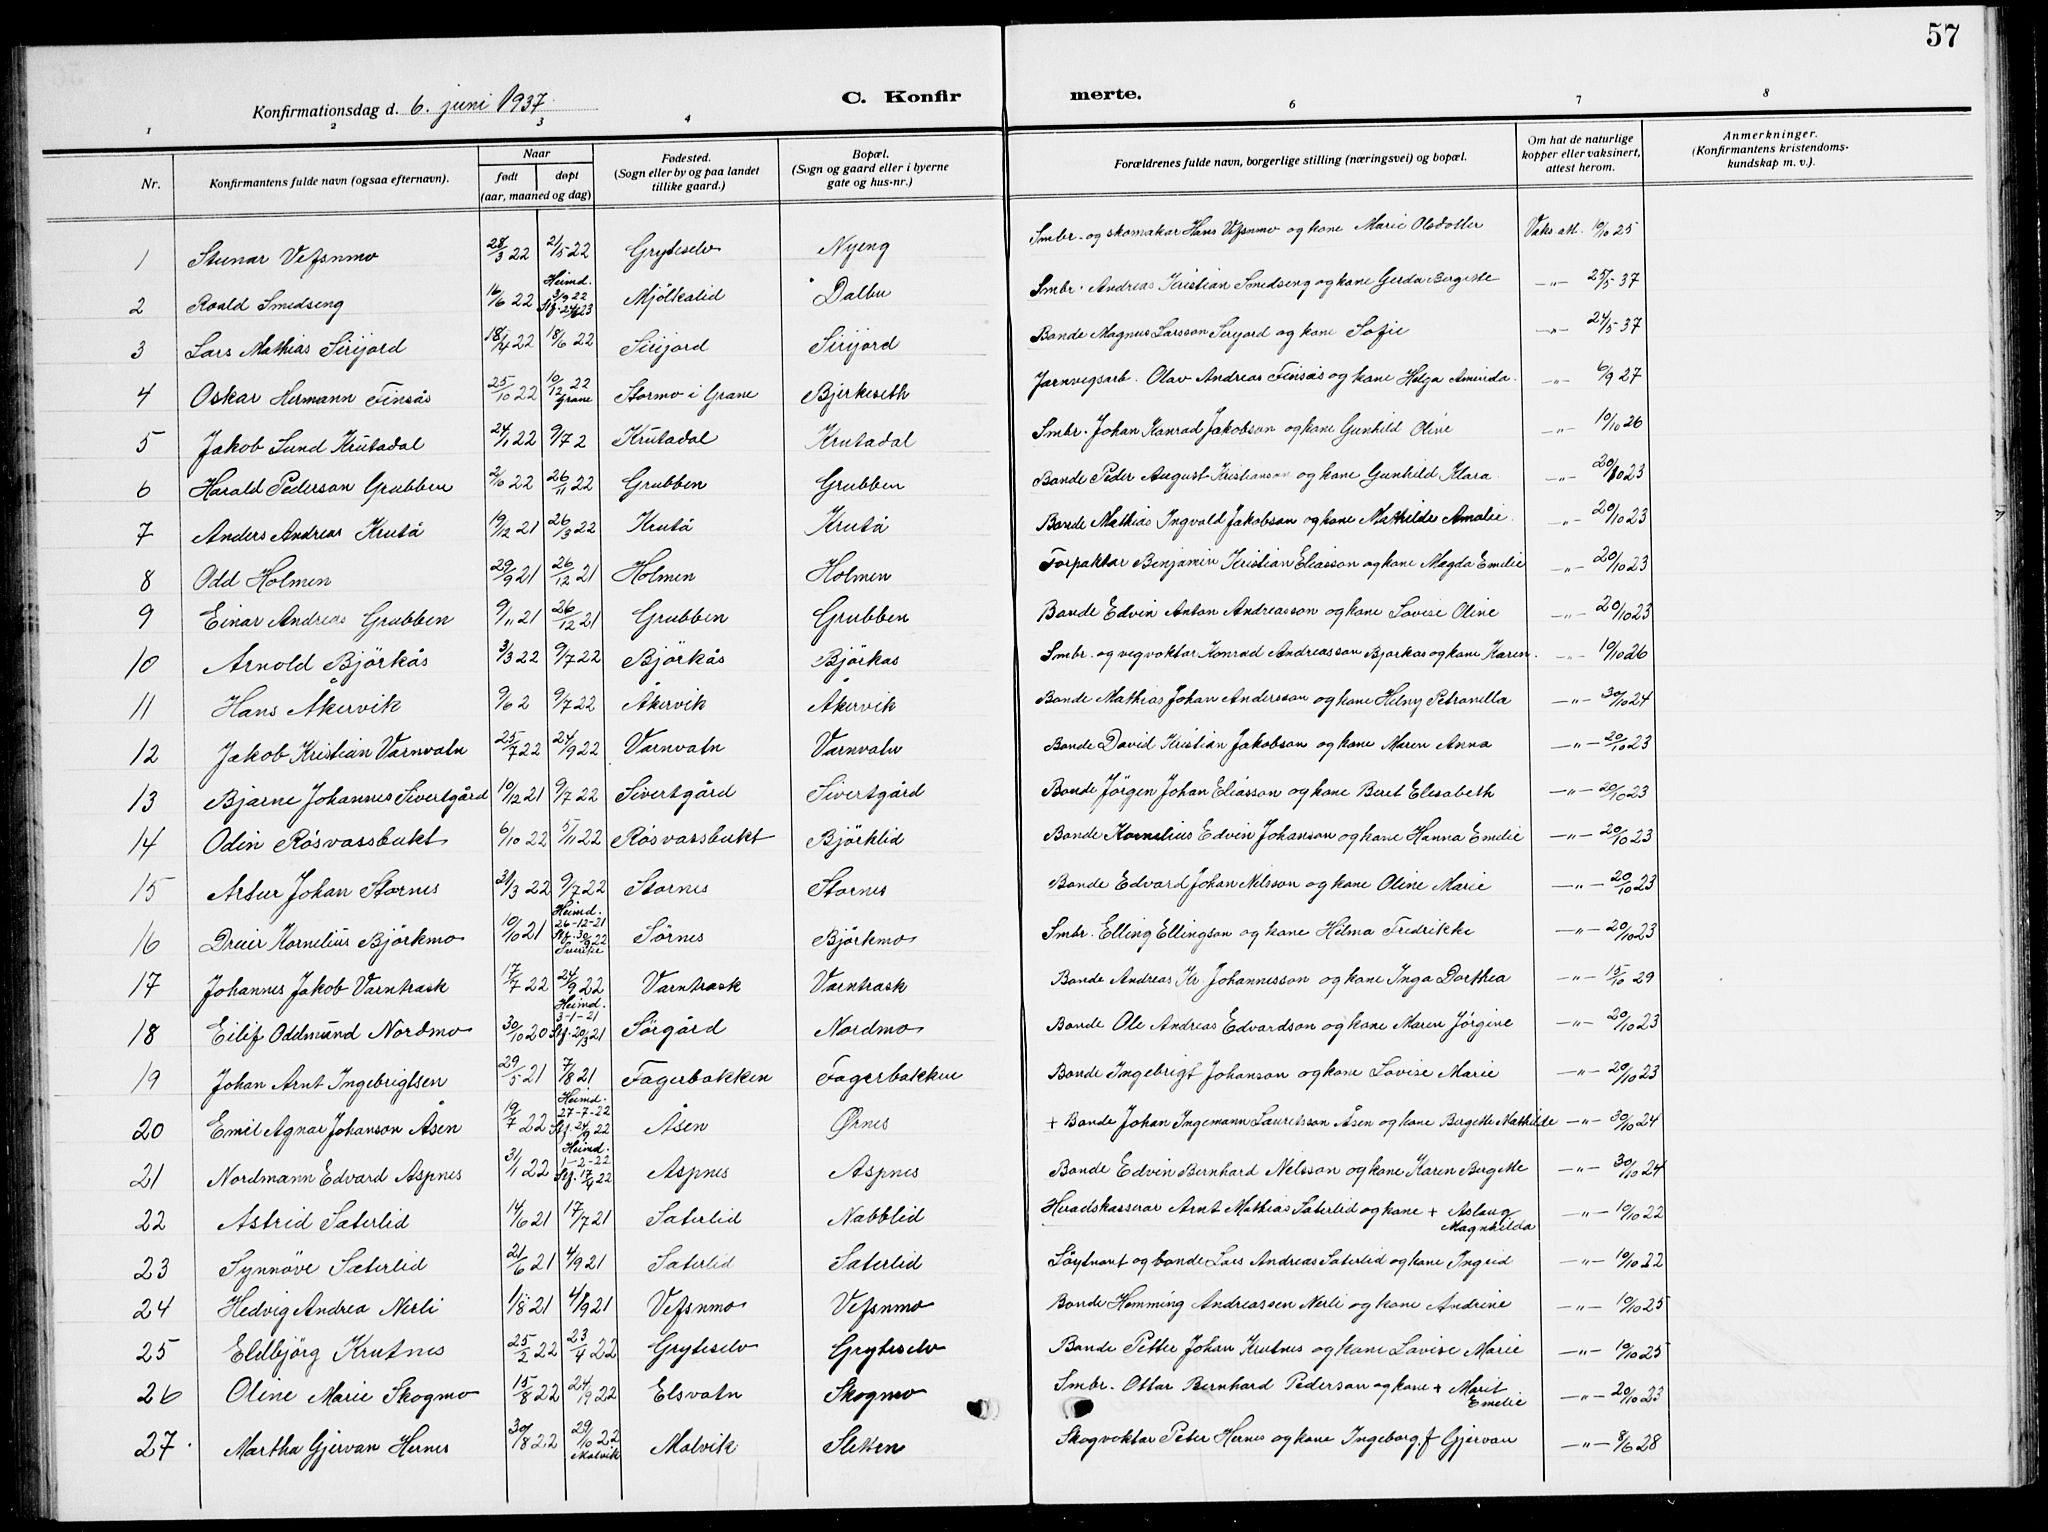 57
Konfirmationsdag d. 6. juni 1937.
C. Konfirmerte.
1 2 3 4 6 7 8
Nr.
Konfirmantens fulde navn (ogsaa efternavn).
Naar
født døpt
(aar, maaned og dag)
Fødested.
(Sogn eller by og paa landet
tillike gaard.)
Bopæl.
(Sogn og gaard eller i byerne
gate og hus-nr.)
Forældrenes fulde navn, borgerlige stilling (næringsvei) og bopæl.
Om hat de naturlige
kopper eller vaksinert,
attest herom.
Anmerkninger.
(Konfirmantens kristendoms-
kundskap m. v.).
1 Steinar Vefsnmo 28/3 22 21/5 22 Gryteselv Nyeng Smbr. og skomakar Hans Vefsnmo og kone Marie Olsdotter Vaks. att. 10/10 25
2 Roald Smedseng 16/6 22 Heimd. 3/9 22 Stf. 24/6 23 Mjölkalid Dalbu Smbr. Andreas Kristian Smedseng og kone Gerda Bergitte —„— 25/5 37
3 Lars Mathias Sirijord 18/4 22 18/6 22 Sirijord Sirijord Bonde Magnus Larsson Sirijord og kone Sofie —„— 24/5 37
4 Oskar Hermann Finsås 25/10 22 10/12 22 Grane Stormo i Grane Bjerkeseth Jarnvegsarb. Olav Andreas Finsås og kone Helga Aminda. —„— 6/9 27
5 Jakob Sund Krutådal 24/1 22 9/7 2 Krutådal Krutådal Smbr. Johan Konrad Jakobson og kone Gunhild Oline —„— 10/10 26
6 Harald Pederson Grubben 2/10 22 26/11 22 Grubben Grubben Bonde Peder August Kristianson og kone Gunhild Klara. —„— 20/10 23
7 Anders Andreas Krutå 19/12 21 26/3 22 Krutå Krutå Bonde Mathias Ingvald Jakobson og kone Mathilde Amalie. —„— 20/10 23
8 Odd Holmen 29/9 21 26/12 21 Holmen Holmen Forpaktar Benjamin Kristian Eliasson og kone Magda Emelie —„— 20/10 23
9 Einar Andreas Grubben 9/11 21 26/12 21 Grubben Grubben Bonde Edvin Anton Andreasson og kone Lovise Oline —„— 20/10 23
10 Arnold Björkås 3/3 22 9/7 22 Björkås Björkås Smbr. og vegvoktar Konrad Andreasson Bjorkås og kone Karen. —„— 10/10 26
11 Hans Åkervik 9/6 2 9/7 22 Åkervik Åkervik Bonde Mathias Johan Andersson og kone Helny Petronella —„— 30/10 24
12 Jakob Kristian Varnvatn 25/7 22 24/9 22 Varnvatn Varnvatn Bonde David Kristian Jakobson og kone Maren Anna —„— 20/10 23
13 Bjarne Johannes Sivertgård 10/12 21 9/7 22 Sivertgård Sivertgård Bonde Jörgen Johan Eliasson og kone Beret Elesabeth —„— 20/10 23
14 Odin Rösvassbukt 6/10 22 5/11 22 Rösvassbukt Björklid Bonde Kornelius Edvin Johanson og kone Hanna Emelie —„— 20/10 23
15 Artur Johan Stornes 31/3 22 9/7 22 Stornes Stornes Bonde Edvard Johan Nilsson og kone Oline Marie —„— 20/10 23
16 Kornelius Björkmo 10/10 21 Heimd. 26-12-21 Sörnes Björkmo Smbr. Elling Ellingson og kone Helma Fredrikke —„— 20/10 23
17 Johannes Jakob Varntresk 17/7 22 24/9 22 Varntresk Varntresk Bonde Andreas Kr. Johannesson og kone Inga Dorthea —„— 15/10 29
18 Eilif Oddmund Nordmo 30/10 20 Heimd. 3-1-21 Stf. 20/3 21 Sörgård Nordmo Bonde Ole Andreas Edvardson og kone Maren Jörgine —„— 20/10 23
19 Johan Arnt Ingebrigtsen 29/5 21 7/8 21 Fagerbakken Fagerbakken Bonde Ingebrigt Johanson og kone Lovise Marie —„— 20/10 23
20 Emil Agnar Johanson Åsen 19/7 22 Heimd. 27-7-22 Stf. 24/9 22 Åsen Ørnes + Bonde Johan Ingemann Lauritsson Åsen og kone Bergitte Mathilde —„— 30/10 24
21 Nordmann Edvard Aspnes 31/1 22 Heimd. 1-2-22 Stf. 17/4 22 Aspnes Aspnes Bonde Edvin Bernhard Nelsson og kone Karen Bergitte —„— 30/10 24
22 Astrid Sæterlid 14/6 21 17/7 21 Sæterlid Nabblid Heradskasserar Arnt Mathias Sæterlid og kone + Aslaug Magnhilda —„— 10/10 22
23 Synnöve Sæterlid 21/6 21 4/9 21 Sæterlid Sæterlid Löytnant og bonde Lars Andreas Sæterlid og kone Ingrid —„— 10/10 22
24 Hedvig Andrea Nerli 1/8 21 4/9 21 Vefsnmo Vefsnmo Bonde Hemming Andreassen Nerli og kone Andrine —„— 10/10 25
25 Eldbjörg Krutnes 25/2 22 23/4 22 Gryteselv Gryteselv Bonde Petter Johan Krutnes og kone Lovise Marie —„— 10/10 25
26 Oline Marie Skogmo 15/8 22 24/9 22 Elsvatn Skogmo Smbr. Ottar Bernhard Pederson og kone + Marit Emelie —„— 20/10 23
27. Martha Gjervan Hernes 30/8 22 29/10 22 Malvik Malvik Sletten Skogvoktar Peter Hernes og kone Ingeborg f. Gjervan —„— 8/6 28